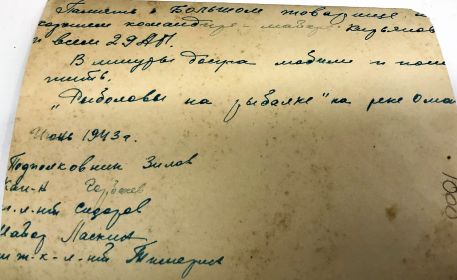 Память о Большом товарище и
хорошем командире - майоре Кирьянов
и всем 29АП.
В минуты досуга любили и пош
тить.
"Рыболовы на рыбалке" на реке Ома
Июнь 1943г.
Подполковник Зилов
Кап-н
л-нт Сидоров
майор Ласкин
л-нт
1000